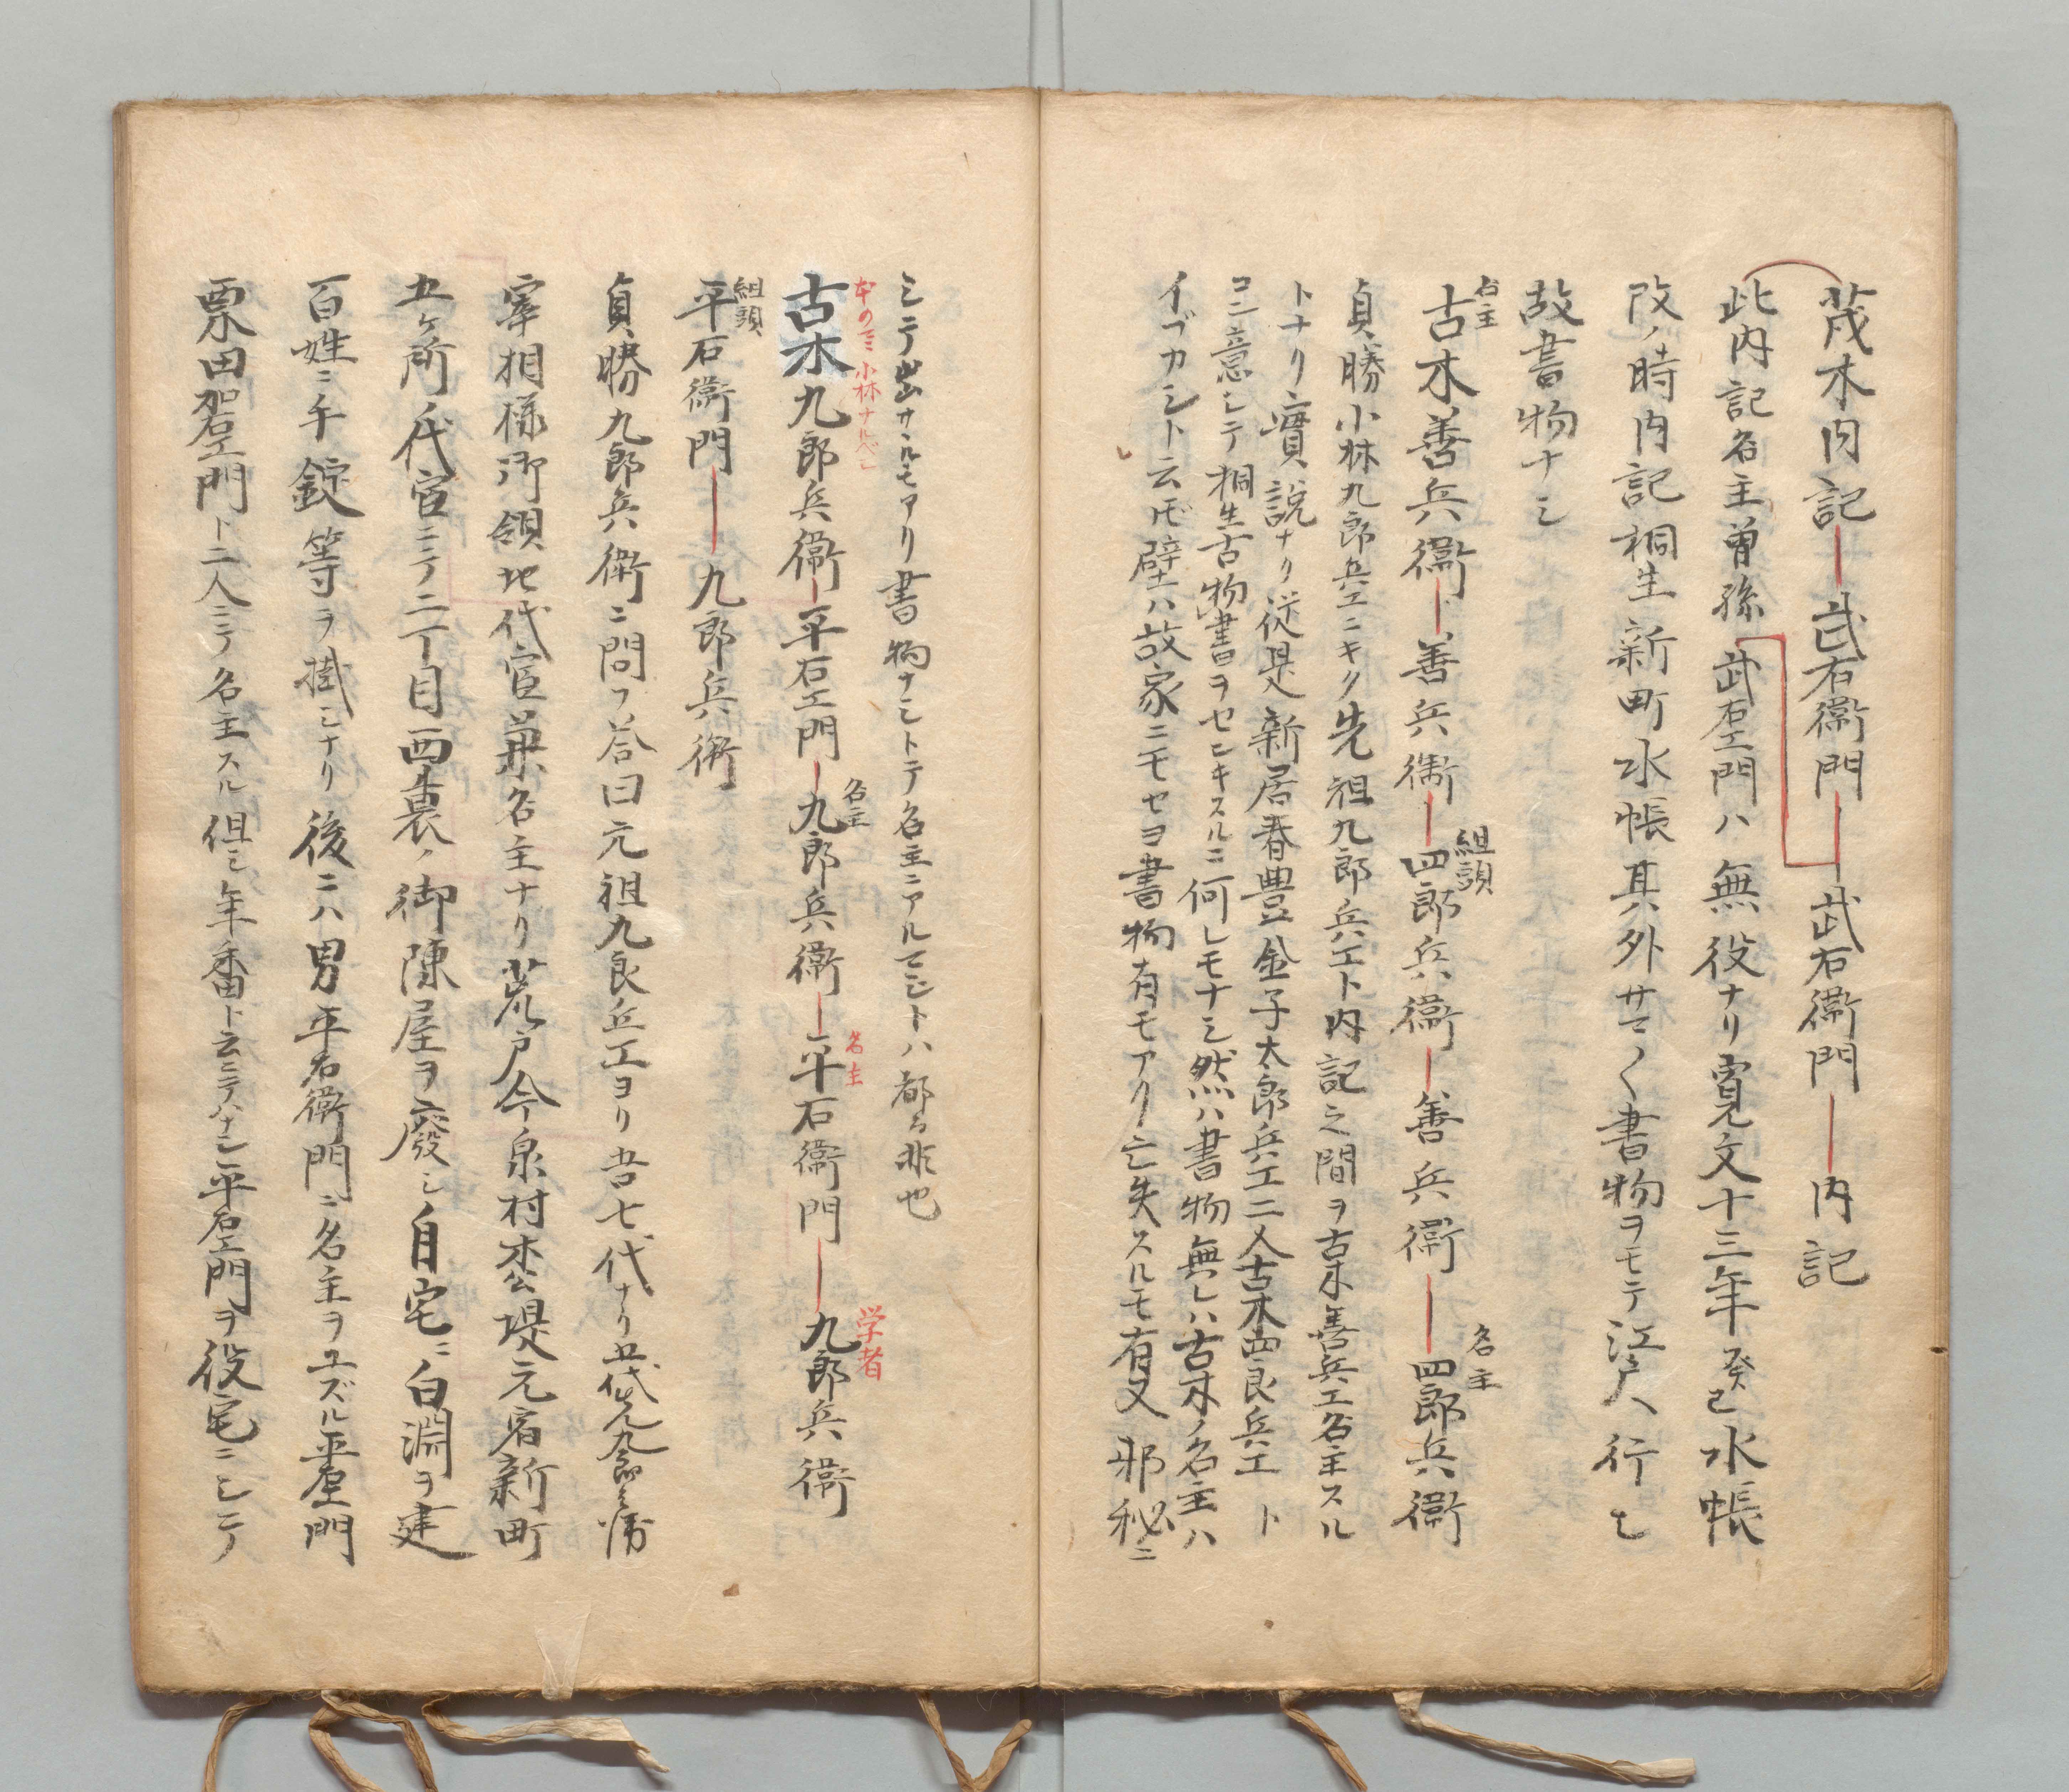 茂木内記 武右衞門 武右衞門 内記
此内記名主曽孫武右エ門ハ無役ナリ寛文十三年癸巳水帳
改ノ時内記桐生新町水帳其外サマ〱書物ヲモテ江戸ヘ行
故書物ナシ
名主
古木善兵衞 善兵衞 四郎兵衞 善兵衞 四郎兵衞
組頭
名主
貞勝小林九郎兵エニキク先祖九郎兵エト内記之間ヲ古木善兵エ名主スル
トナリ實説ナリ従是新居春豊金子太郎兵エ二人古木四良兵エト
コニ意シテ桐生古物書ヲセンキスルニ何レモナシ然ハ書物無レハ古木ノ名主ハ
イブカシト云 壁ハ故家ニモセヨ書物有モアリ亡失スルモ有又邪秘ニ
シテ出サヽルモアリ書物ナシトテ名主ニアルマシトハ都而非也
本のミ小林ナルヘシ
古木九郎兵衞 平右エ門 九郎兵衞 平右衞門 九郎兵衞
名主
名主
学者
組頭
平右衞門 九郎兵衞
貞勝九郎兵衞ニ問フ答曰元祖九良兵エヨリ吾七代ナリ
宰相様御領地代官兼名主ナリ荒戸今泉村本公堤元宿新町
五ヶ所代官ニテ二丁目西裏ノ御陳屋ヲ廢シ自宅ニ白淵ヲ建
百姓ニ手錠等ヲ掛シナリ後ニハ男平右衞門ニ名主ヲユズル平右エ門
栗田加右エ門ト二人ニテ名主スル但シ年番ト云ニテハナシ平右エ門ヲ役宅ニシテ